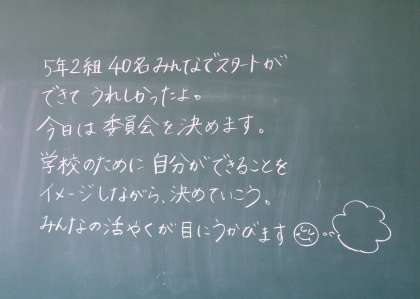 5年2組 40名みんなでスタートが
できて うれしかったよ。
今日は 委員会を決めます。
学校のために 自分ができることを
イメージしながら、決めていこう。
みんなの活やくが目にうかびます